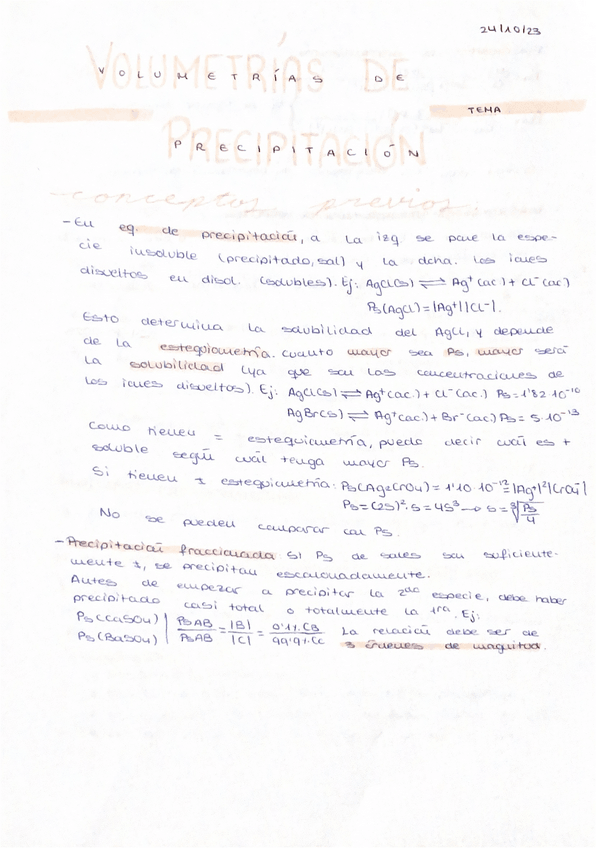 24/10/23
VOLUMETRÍAS DE
TEMA
PRECIPITACIÓN
conceptos previos
- En eq. de precipitación, a la izq. se pone la espe-
cie insoluble (precipitado, sal) y la dcha. los iones
disueltos en disol. (solubles). Ej: AgCl(s) ⇌ Ag⁺(ac) + Cl⁻(ac)
Ps(AgCl) = |Ag⁺||Cl⁻|.
Esto determina la solubilidad del AgCl, y depende
de la estequiometría. Cuanto mayor sea Ps, mayor será
la solubilidad (ya que son las concentraciones de
los iones disueltos). Ej: AgCl(s) ⇌ Ag⁺(ac.) + Cl⁻(ac) Ps = 1'82·10⁻¹⁰
AgBr(s) ⇌ Ag⁺(ac.) + Br⁻(ac) Ps = 5·10⁻¹³
Como tienen = estequiometría, puedo decir cuál es +
soluble según cuál tenga mayor Ps.
Si tienen ≠ estequiometría: Ps(Ag₂CrO₄) = 1'10·10⁻¹² = |Ag⁺|²|CrO₄⁼|
Ps = (2s)²·s = 4s³ → s = ∛(Ps/4)
No se pueden comparar con Ps.
- Precipitación fraccionada. Si Ps de sales son suficiente-
mente ≠, se precipitan escalonadamente.
Antes de empezar a precipitar la 2ⁿᵈᵃ especie, debe haber
precipitado casi total o totalmente la 1ʳᵃ. Ej:
Ps(CaSO₄) | PsAB/PsAB = |B|/|C| = 0'1%·CB/99'9%·Cc La relación debe ser de
Ps(BaSO₄) 3 órdenes de magnitud.